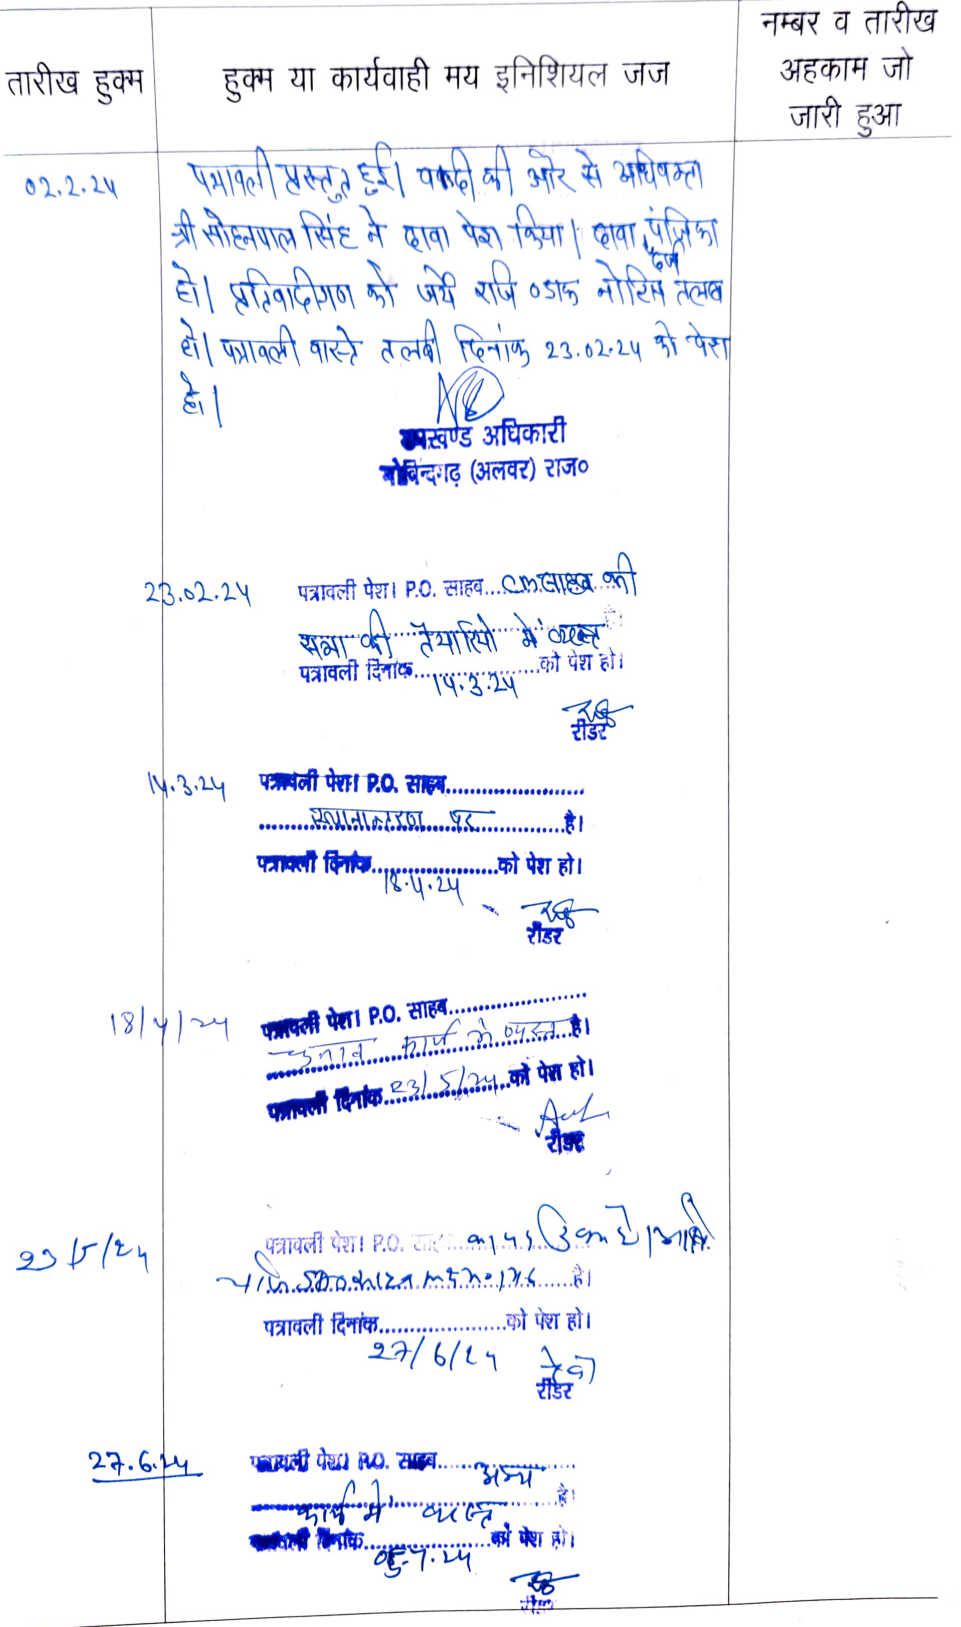 तारीख हुक्म
हुक्म या कार्यवाही मय इनिशियल जज
नम्बर व तारीख
अहकाम जो
जारी हुआ
02.2.24
पत्रावली प्रस्तुत हुई। की ओर से अधिवक्ता
श्री सोहनपाल सिंह ने दावा पेश किया। दावा पंजिका
दर्ज
हो। प्रतिवादीगण को जर्ये रजि ०डाक नोटिस तलब
हो। पत्रावली वास्ते तलबी दिनांक 23.02.24 को पेश
हो।
उपखण्ड अधिकारी
गोविन्दगढ़ (अलवर) राज०
23.02.24
पत्रावली पेश। P.O. साहब...CM साहब की
सभा की तैयारियो में व्यस्त है।
पत्रावली दिनांक 14.3.24 को पेश हो।
रीडर
14.3.24
पत्रावली पेश। P.O. साहब
स्थानान्तरण पर है।
पत्रावली दिनांक 18.4.24 को पेश हो।
रीडर
18/4/24
पत्रावली पेश। P.O. साहब
चुनाव कार्य मे व्यस्त है।
पत्रावली दिनांक 23/5/24 को पेश हो।
रीडर
23/5/24
पत्रावली पेश। P.O. साहब
है।
पत्रावली दिनांक 27/6/24 को पेश हो।
रीडर
27.6.24
पत्रावली पेश। P.O. साहब अन्य
कार्य में व्यस्त है।
पत्रावली दिनांक 05.7.24 को पेश हो।
रीडर